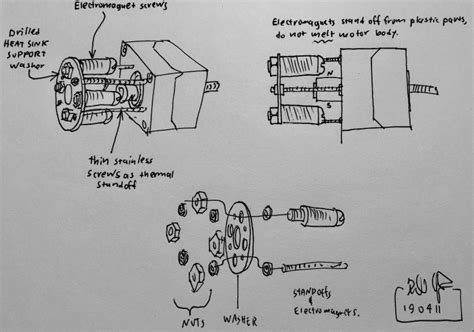 Electromagnet screws
Drilled
HEAT SINK
SUPPORT
Washer
thin stainless
screws as thermal
standoff
Electromagnets stand off from plastic parts,
do not melt motor body.
N
S
NUTS
WASHER
STANDOFFS
&
Electromagnets.
190411